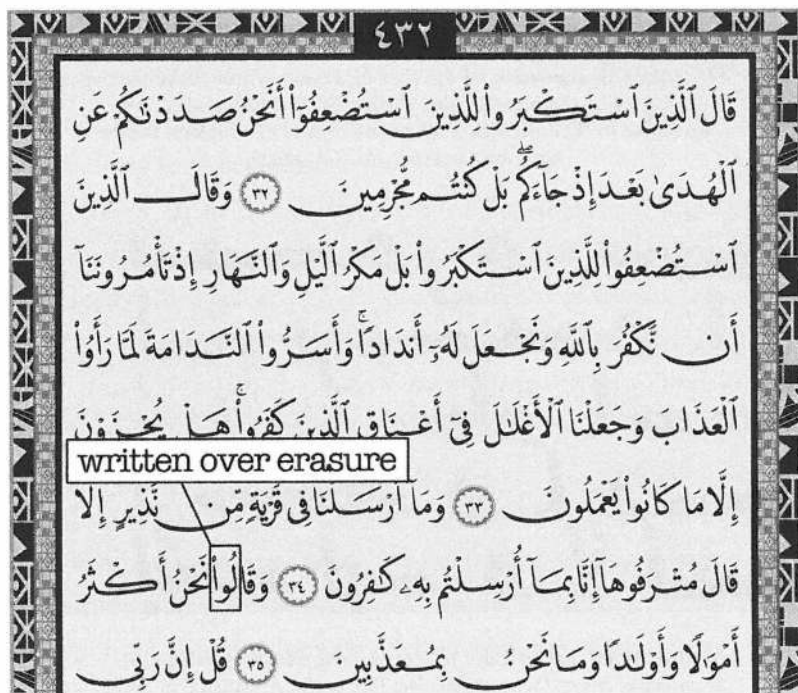 ٤٣٢
قَالَ ٱلَّذِينَ ٱسْتَكْبَرُوا۟ لِلَّذِينَ ٱسْتُضْعِفُوٓا۟ أَنَحْنُ صَدَدْنَٰكُمْ عَنِ
ٱلْهُدَىٰ بَعْدَ إِذْ جَآءَكُم ۖ بَلْ كُنتُم مُّجْرِمِينَ ٣٢ وَقَالَ ٱلَّذِينَ
ٱسْتُضْعِفُوا۟ لِلَّذِينَ ٱسْتَكْبَرُوا۟ بَلْ مَكْرُ ٱلَّيْلِ وَٱلنَّهَارِ إِذْ تَأْمُرُونَنَآ
أَن نَّكْفُرَ بِٱللَّهِ وَنَجْعَلَ لَهُۥٓ أَندَادًا ۚ وَأَسَرُّوا۟ ٱلنَّدَامَةَ لَمَّا رَأَوُا۟
ٱلْعَذَابَ وَجَعَلْنَا ٱلْأَغْلَٰلَ فِىٓ أَعْنَاقِ ٱلَّذِينَ كَفَرُوا۟ ۚ هَلْ يُجْزَوْنَ
written over erasure
إِلَّا مَا كَانُوا۟ يَعْمَلُونَ ٣٣ وَمَآ أَرْسَلْنَا فِى قَرْيَةٍ مِّن نَّذِيرٍ إِلَّا
قَالَ مُتْرَفُوهَآ إِنَّا بِمَآ أُرْسِلْتُم بِهِۦ كَٰفِرُونَ ٣٤ وَقَالُوا۟ نَحْنُ أَكْثَرُ
أَمْوَٰلًا وَأَوْلَٰدًا وَمَا نَحْنُ بِمُعَذَّبِينَ ٣٥ قُلْ إِنَّ رَبِّى